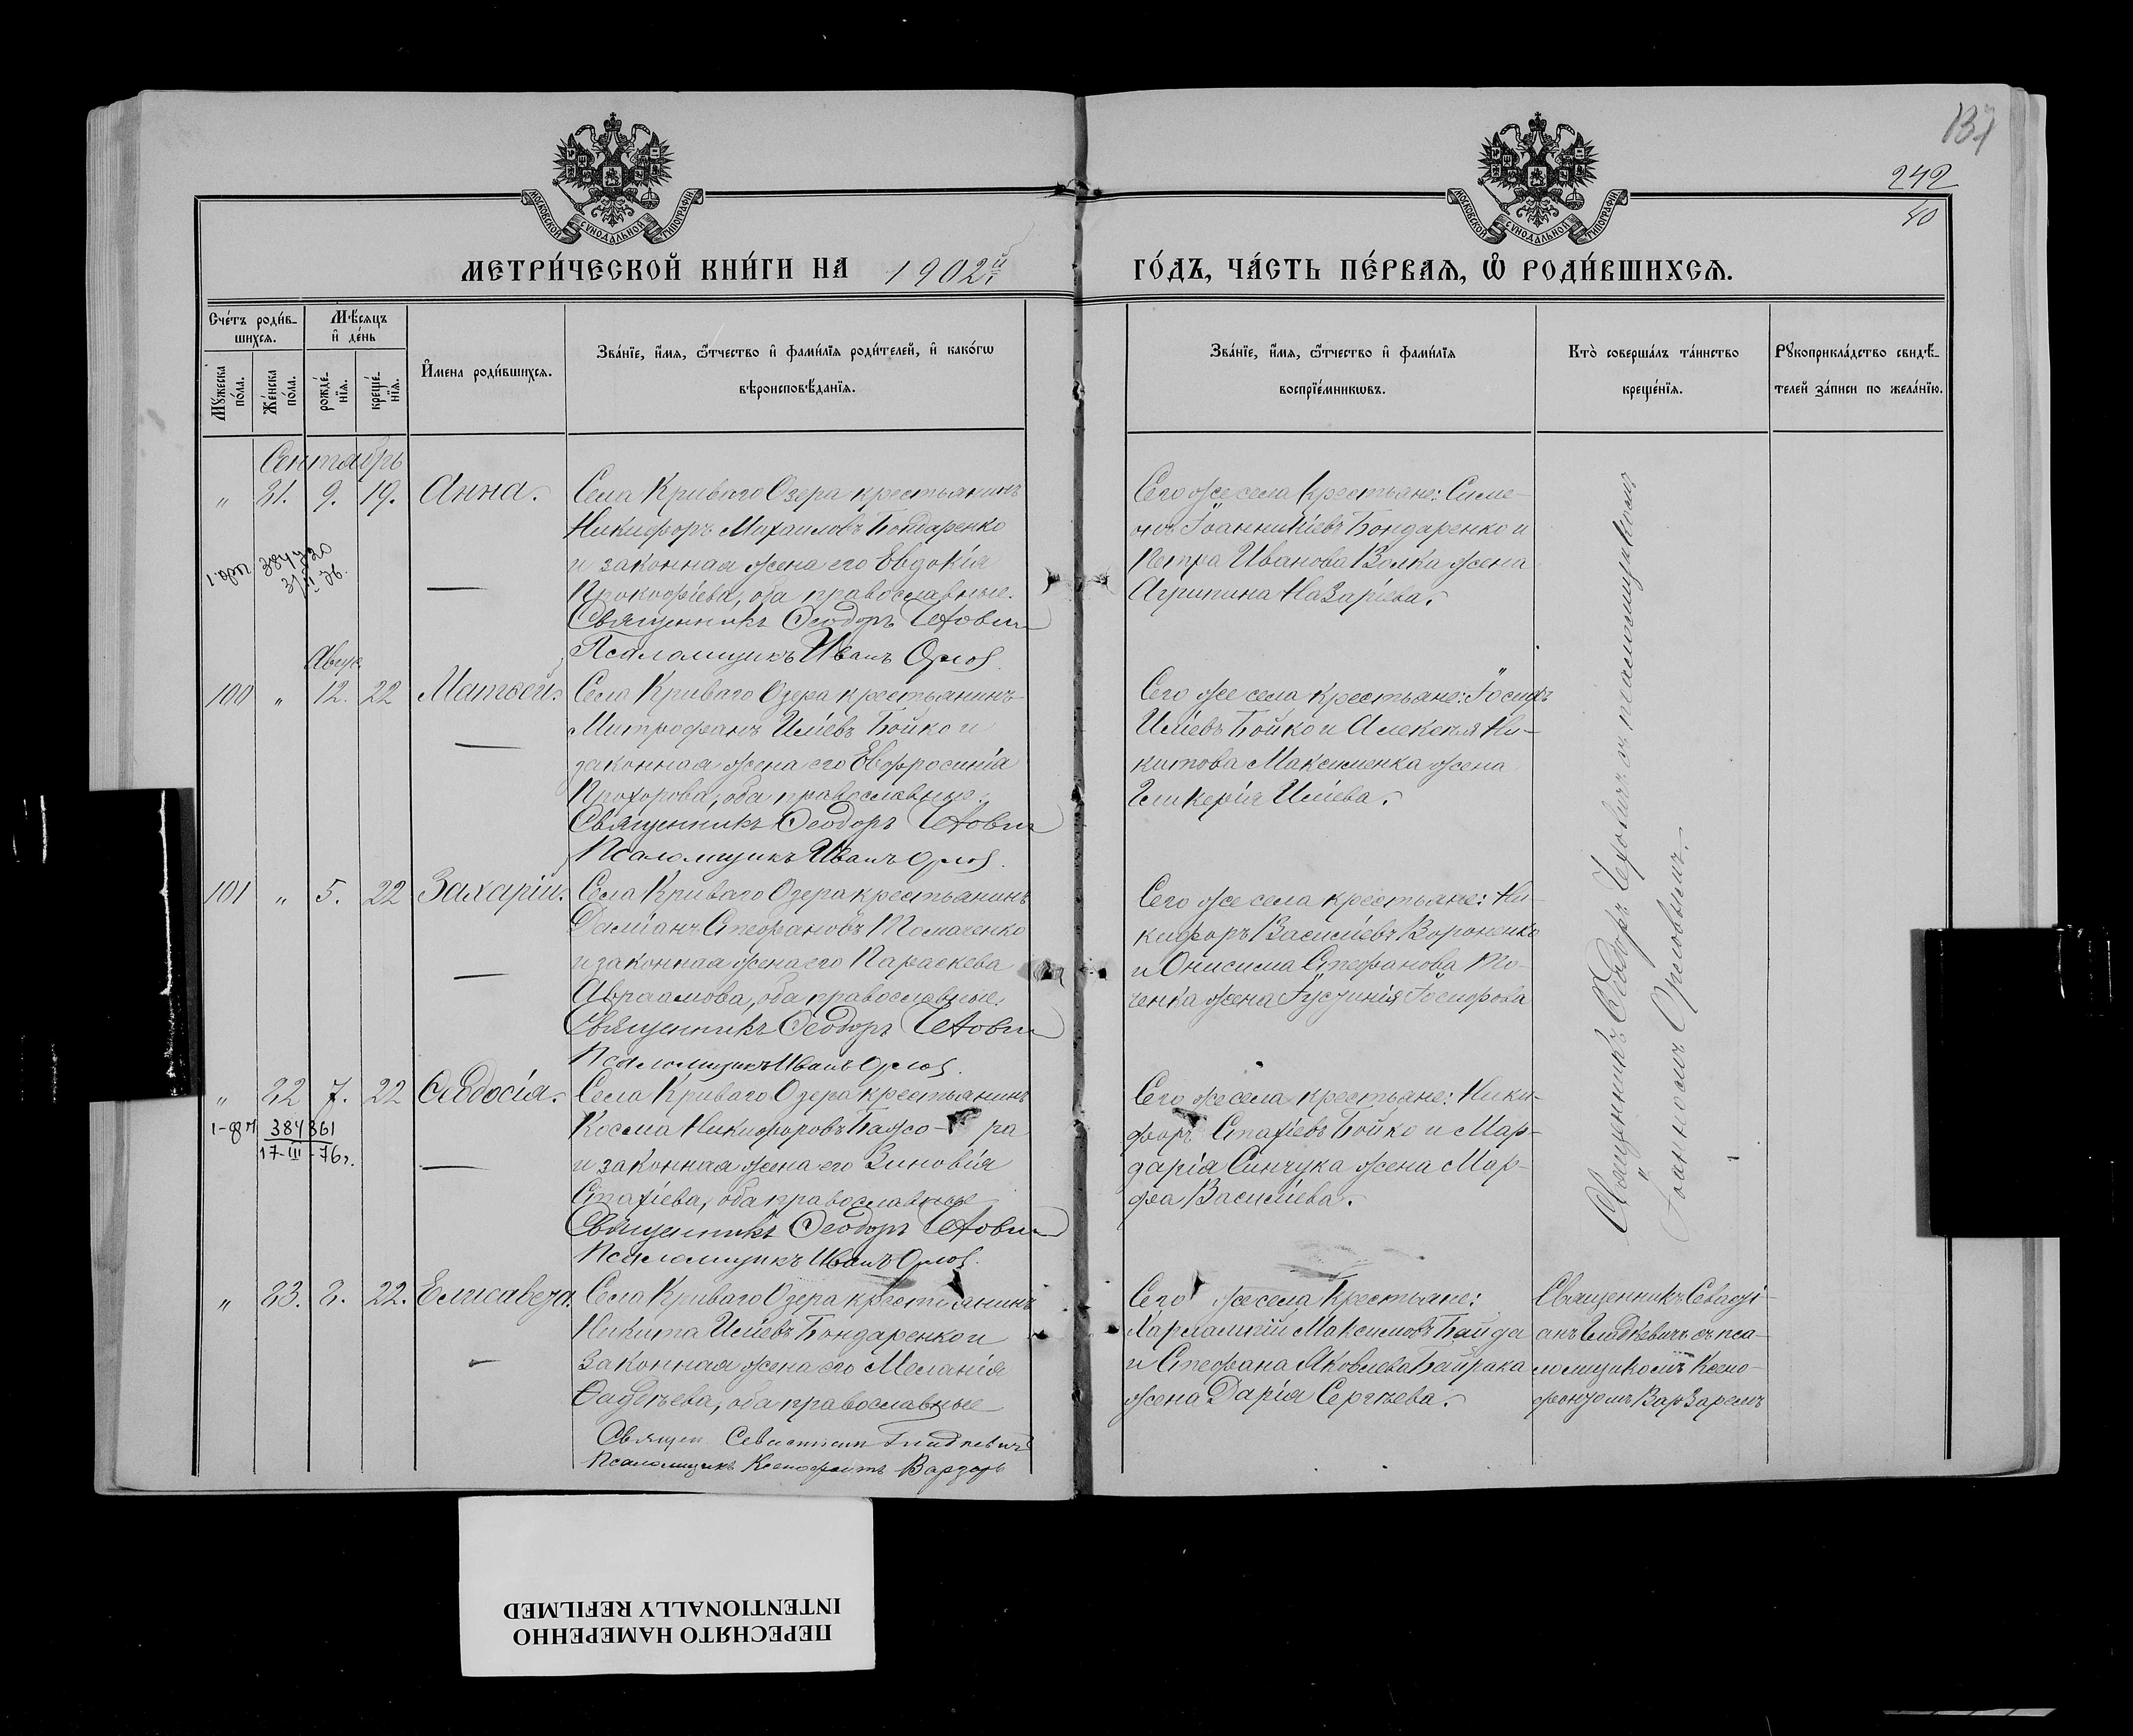 137
242
40
МОСКОВСКОЙ СѴНОДАЛЬНОЙ ТИПОГРАФІИ
МОСКОВСКОЙ СѴНОДАЛЬНОЙ ТИПОГРАФІИ
МЕТРИ́ЧЕСКОЙ КНИ́ГИ НА 1902й
ГО́ДЪ, ЧА́СТЬ ПЕ́РВАЯ, Ѽ РОДИ́ВШИХСЯ.
Сче́тъ роди́в-
шихся.
Мѣ́сяцъ
и҆ де́нь
Мꙋ́жеска по́ла.
Же́нска по́ла.
рожде́-нїя.
креще́-нїя.
И҆мена роди́вшихся.
Зва́нїе, и҆́мя, ѻ҆́тчество и҆ фами́лїя роди́телей, и҆ како́гѡ
вѣроисповѣ́данїя.
Зва́нїе, и҆́мя, ѻ҆́тчество и҆ фами́лїя
воспрїе́мникѡвъ.
Кто̀ соверша́лъ та́инство
креще́нїя.
Рꙋкоприкла́дство свидѣ́-
телей за́писи по жела́нїю.
Сентябрь
" 81. 9. 19. Анна.
Села Криваго Озера крестьянинъ
Никифоръ Михаиловъ Бондаренко
и законная жена его Евдокія
Прокофіева, оба православные.
Священникъ Ѳеодоръ
Псаломщикъ Иванъ Орлов
Сего же села крестьяне: Симе-
онъ Іоанникіевъ Бондаренко и
Петра Иванова Волка жена
Агрипина Назаріева.
Авгус.
100 " 12. 22 Матѳей.
Села Криваго Озера крестьянинъ
Митрофанъ Иліевъ Бойко и
законная жена его Евфросинія
Прохорова, оба православные.
Священникъ Ѳеодоръ
Псаломщикъ Иванъ Орлов
Сего же села крестьяне: Іосифъ
Иліевъ Бойко и Алексѣя Ни-
китова Максименка жена
Гликерія Иліева.
101 " 5. 22 Захарій.
Села Криваго Озера крестьянинъ
Даміанъ Стефановъ
и законная жена его Параскева
Авраамова, оба православные.
Священникъ Ѳеодоръ
Псаломщикъ Иванъ Орлов
Сего же села крестьяне: Ни-
кифоръ Василіевъ Вороненко
и Онисима Стефанова
ченка жена Іустинія Іосифова
" 82 7. 22 Ѳеодосія.
1-ф 384861
17-III-76г.
Села Криваго Озера крестьянинъ
Косма Никифоровъ
и законная жена его Зиновія
Стахіева, оба православные
Священникъ Ѳеодоръ
Псаломщикъ Иванъ Орлов
Сего же села крестьяне: Ники-
форъ Стахіевъ Бойко и Мар-
дарія Синчука жена Мар-
фа Василіева.
Священникъ Ѳеодоръ съ псаломщикомъ
Іоанномъ Орловымъ.
" 83. 8. 22. Елисавета.
Села Криваго Озера крестьянинъ
Никита Иліевъ Бондаренко и
законная жена его Меланія
Ѳаддѣева, оба православные
Священ Севастиан
Псаломщикъ Ксенофонтъ Варзарь
Сего же села крестьяне:
Харлампій Максимовъ Байда
и Стефана Яковлева Байрака
жена Дарія Сергѣева.
Священникъ
съ пса-
ломщикомъ Ксено-
фонтомъ Варзаремъ
ПЕРЕСНЯТО НАМЕРЕННО
INTENTIONALLY REFILMED